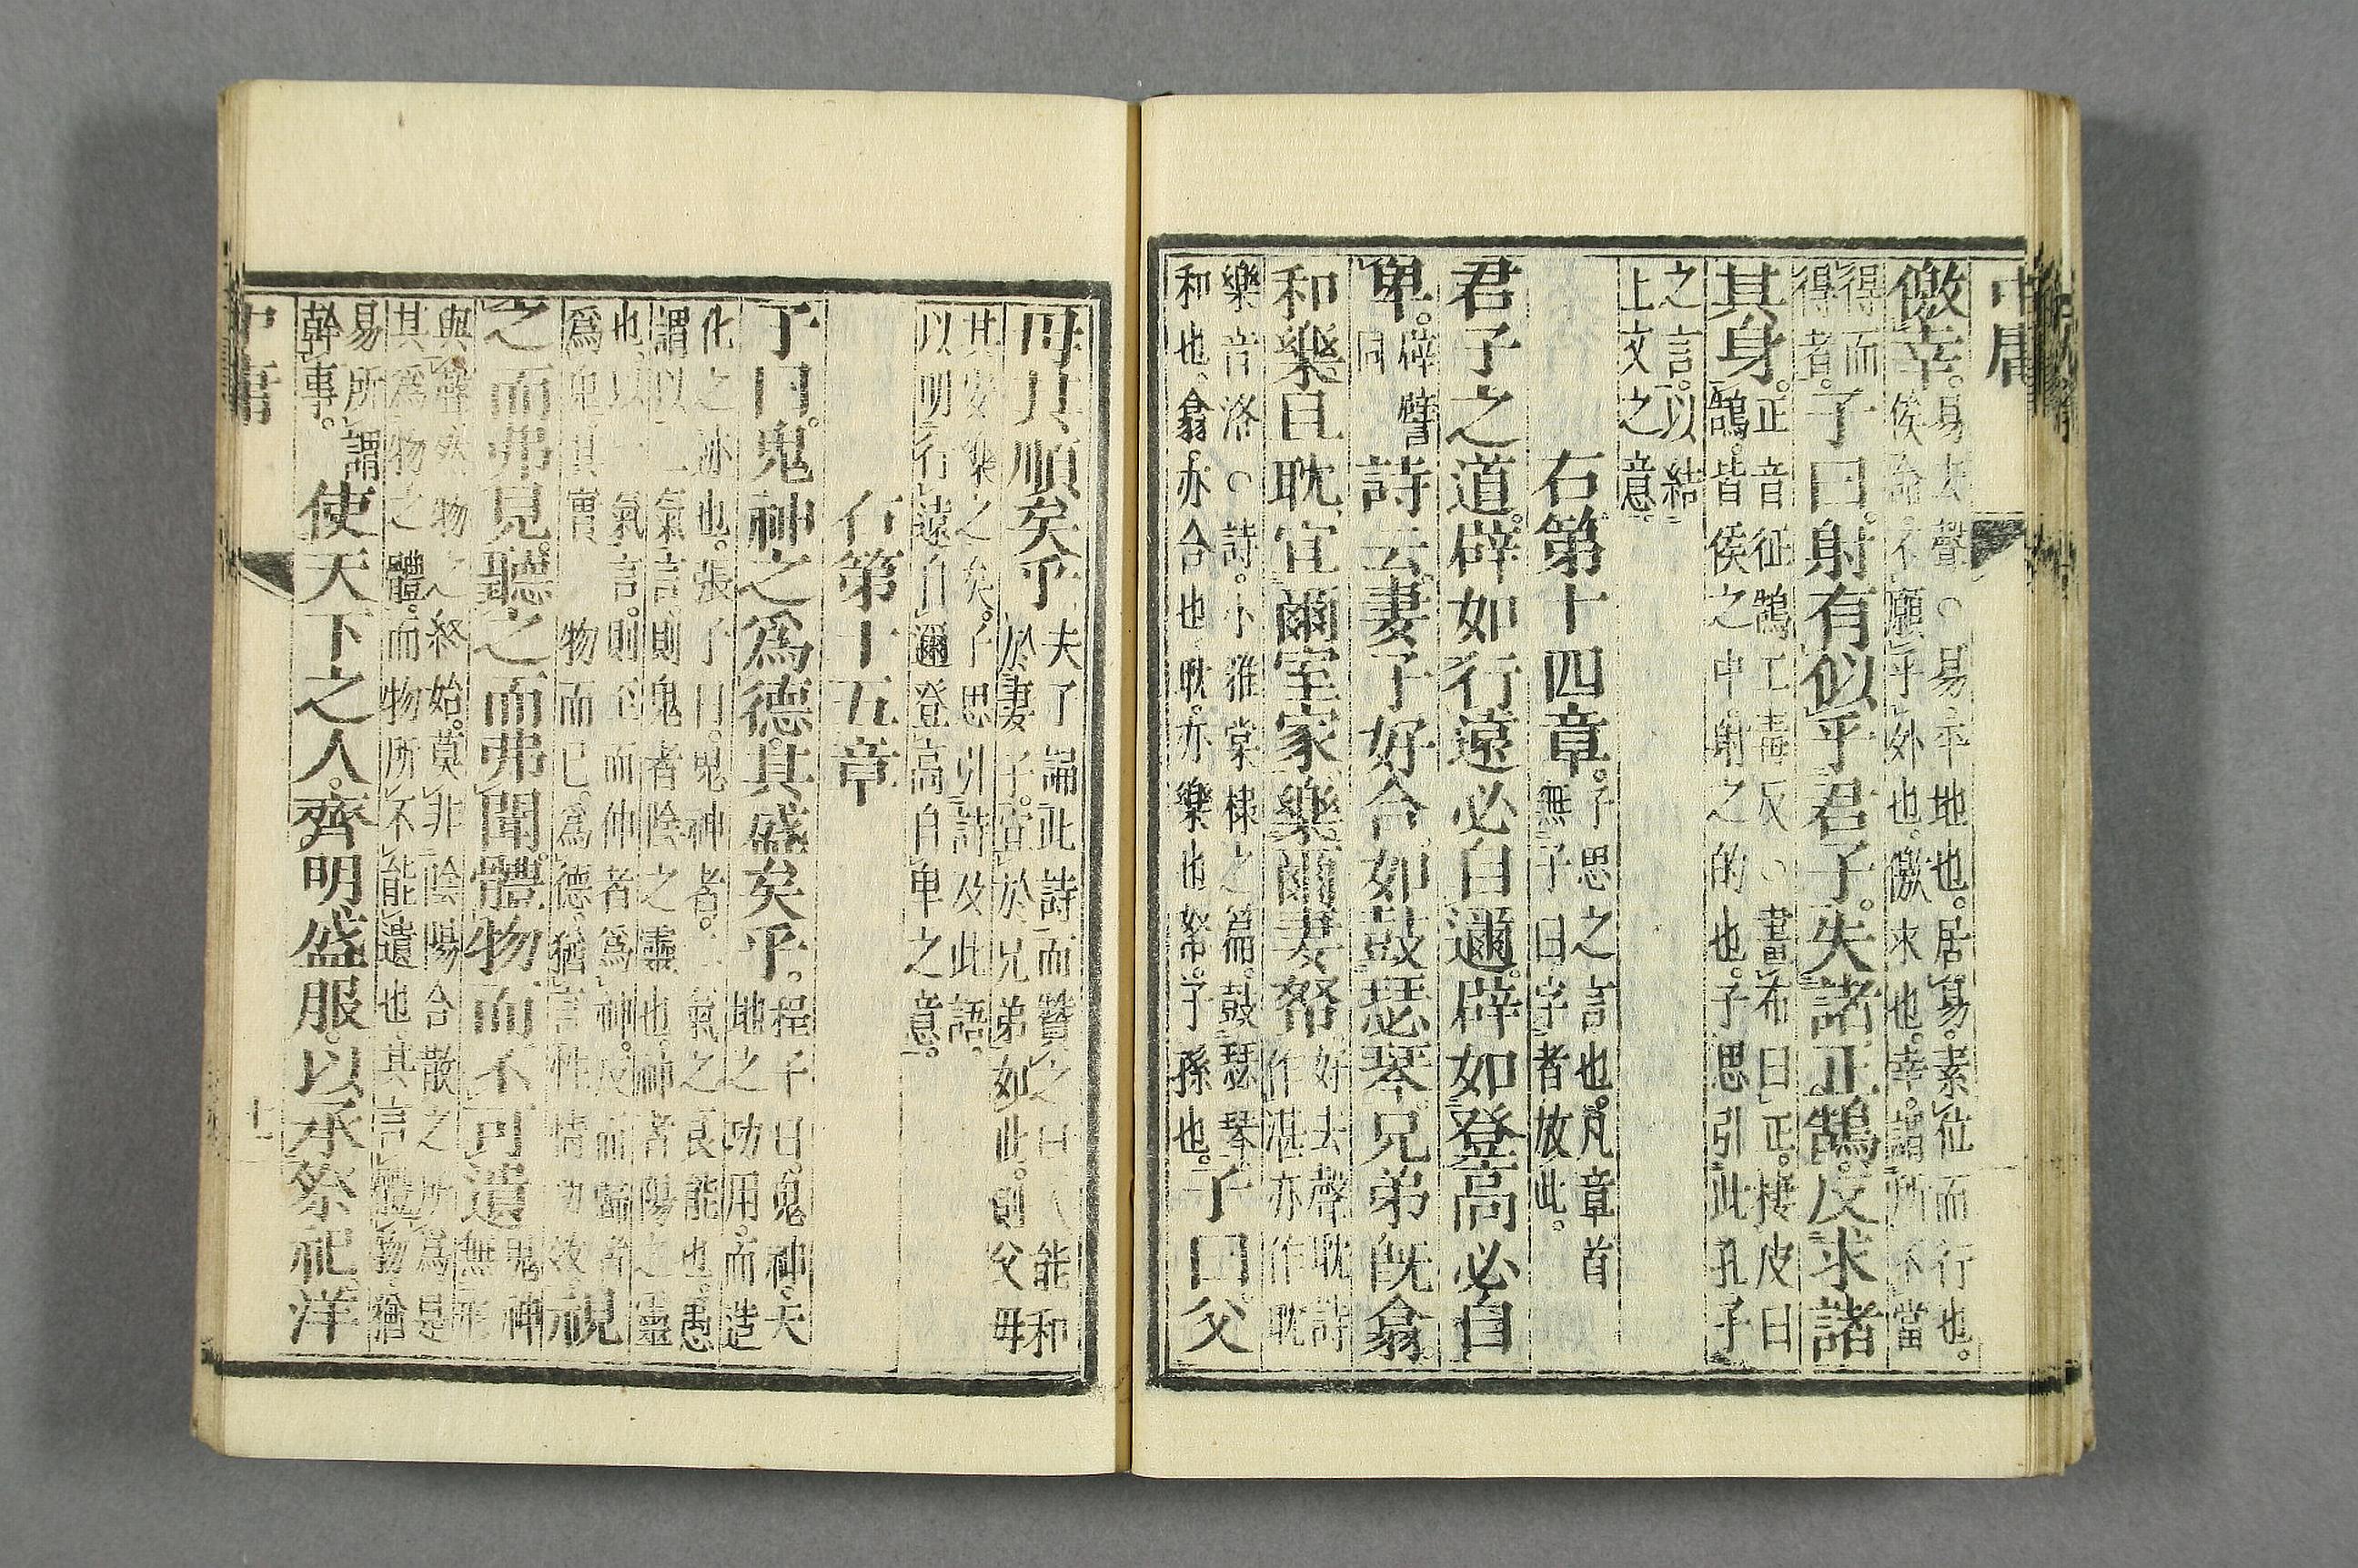 中庸
儌幸。易去聲○易平地也。居易。素位而行也。俟命。不願乎外也。儌求也。幸。謂所不當
得而得者。子曰。射有似乎君子。失諸正鵠。反求諸
其身。正音征鵠工毒反○畫布曰正。棲皮曰鵠。皆侯之中射之的也。子思引此孔子
之言。以結上文之意。
右第十四章。子思之言也。凡章首無子曰字者放此。
君子之道。辟如行遠必自邇。辟如登高必自
卑。辟譬同詩云。妻子好合。如鼓瑟琴。兄弟既翕。
和樂且耽。宜爾室家。樂爾妻帑。好去聲耽詩作湛亦作耽
樂音洛○詩。小雅棠棣之篇。鼓瑟琴。和也。翕亦合也。耽。亦樂也。帑。子孫也。子曰。父
母其順矣乎。夫子誦此詩而贊之曰人能和於妻子。宜於兄弟如此。則父母
其安樂之矣。子思引詩及此語。以明行遠自邇登高自卑之意。
右第十五章
子曰。鬼神之爲德。其盛矣乎。程子曰。鬼神。天地之功用。而造
化之迹也。張子曰。鬼神者。二氣之良能也。愚謂以二氣言。則鬼者陰之靈也。神者陽之靈
也。以一氣言。則至而伸者爲神。反而歸者爲鬼。其實一物而已。爲德。猶言性情功效。視
之而弗見。聽之而弗聞。體物而不可遺。鬼神無形
與聲。然物之終始。莫非陰陽合散之所爲。是其爲物之體。而物所不能遺也。其言體物。猶
易所謂幹事。使天下之人。齊明盛服。以承祭祀。洋
中庸
十一